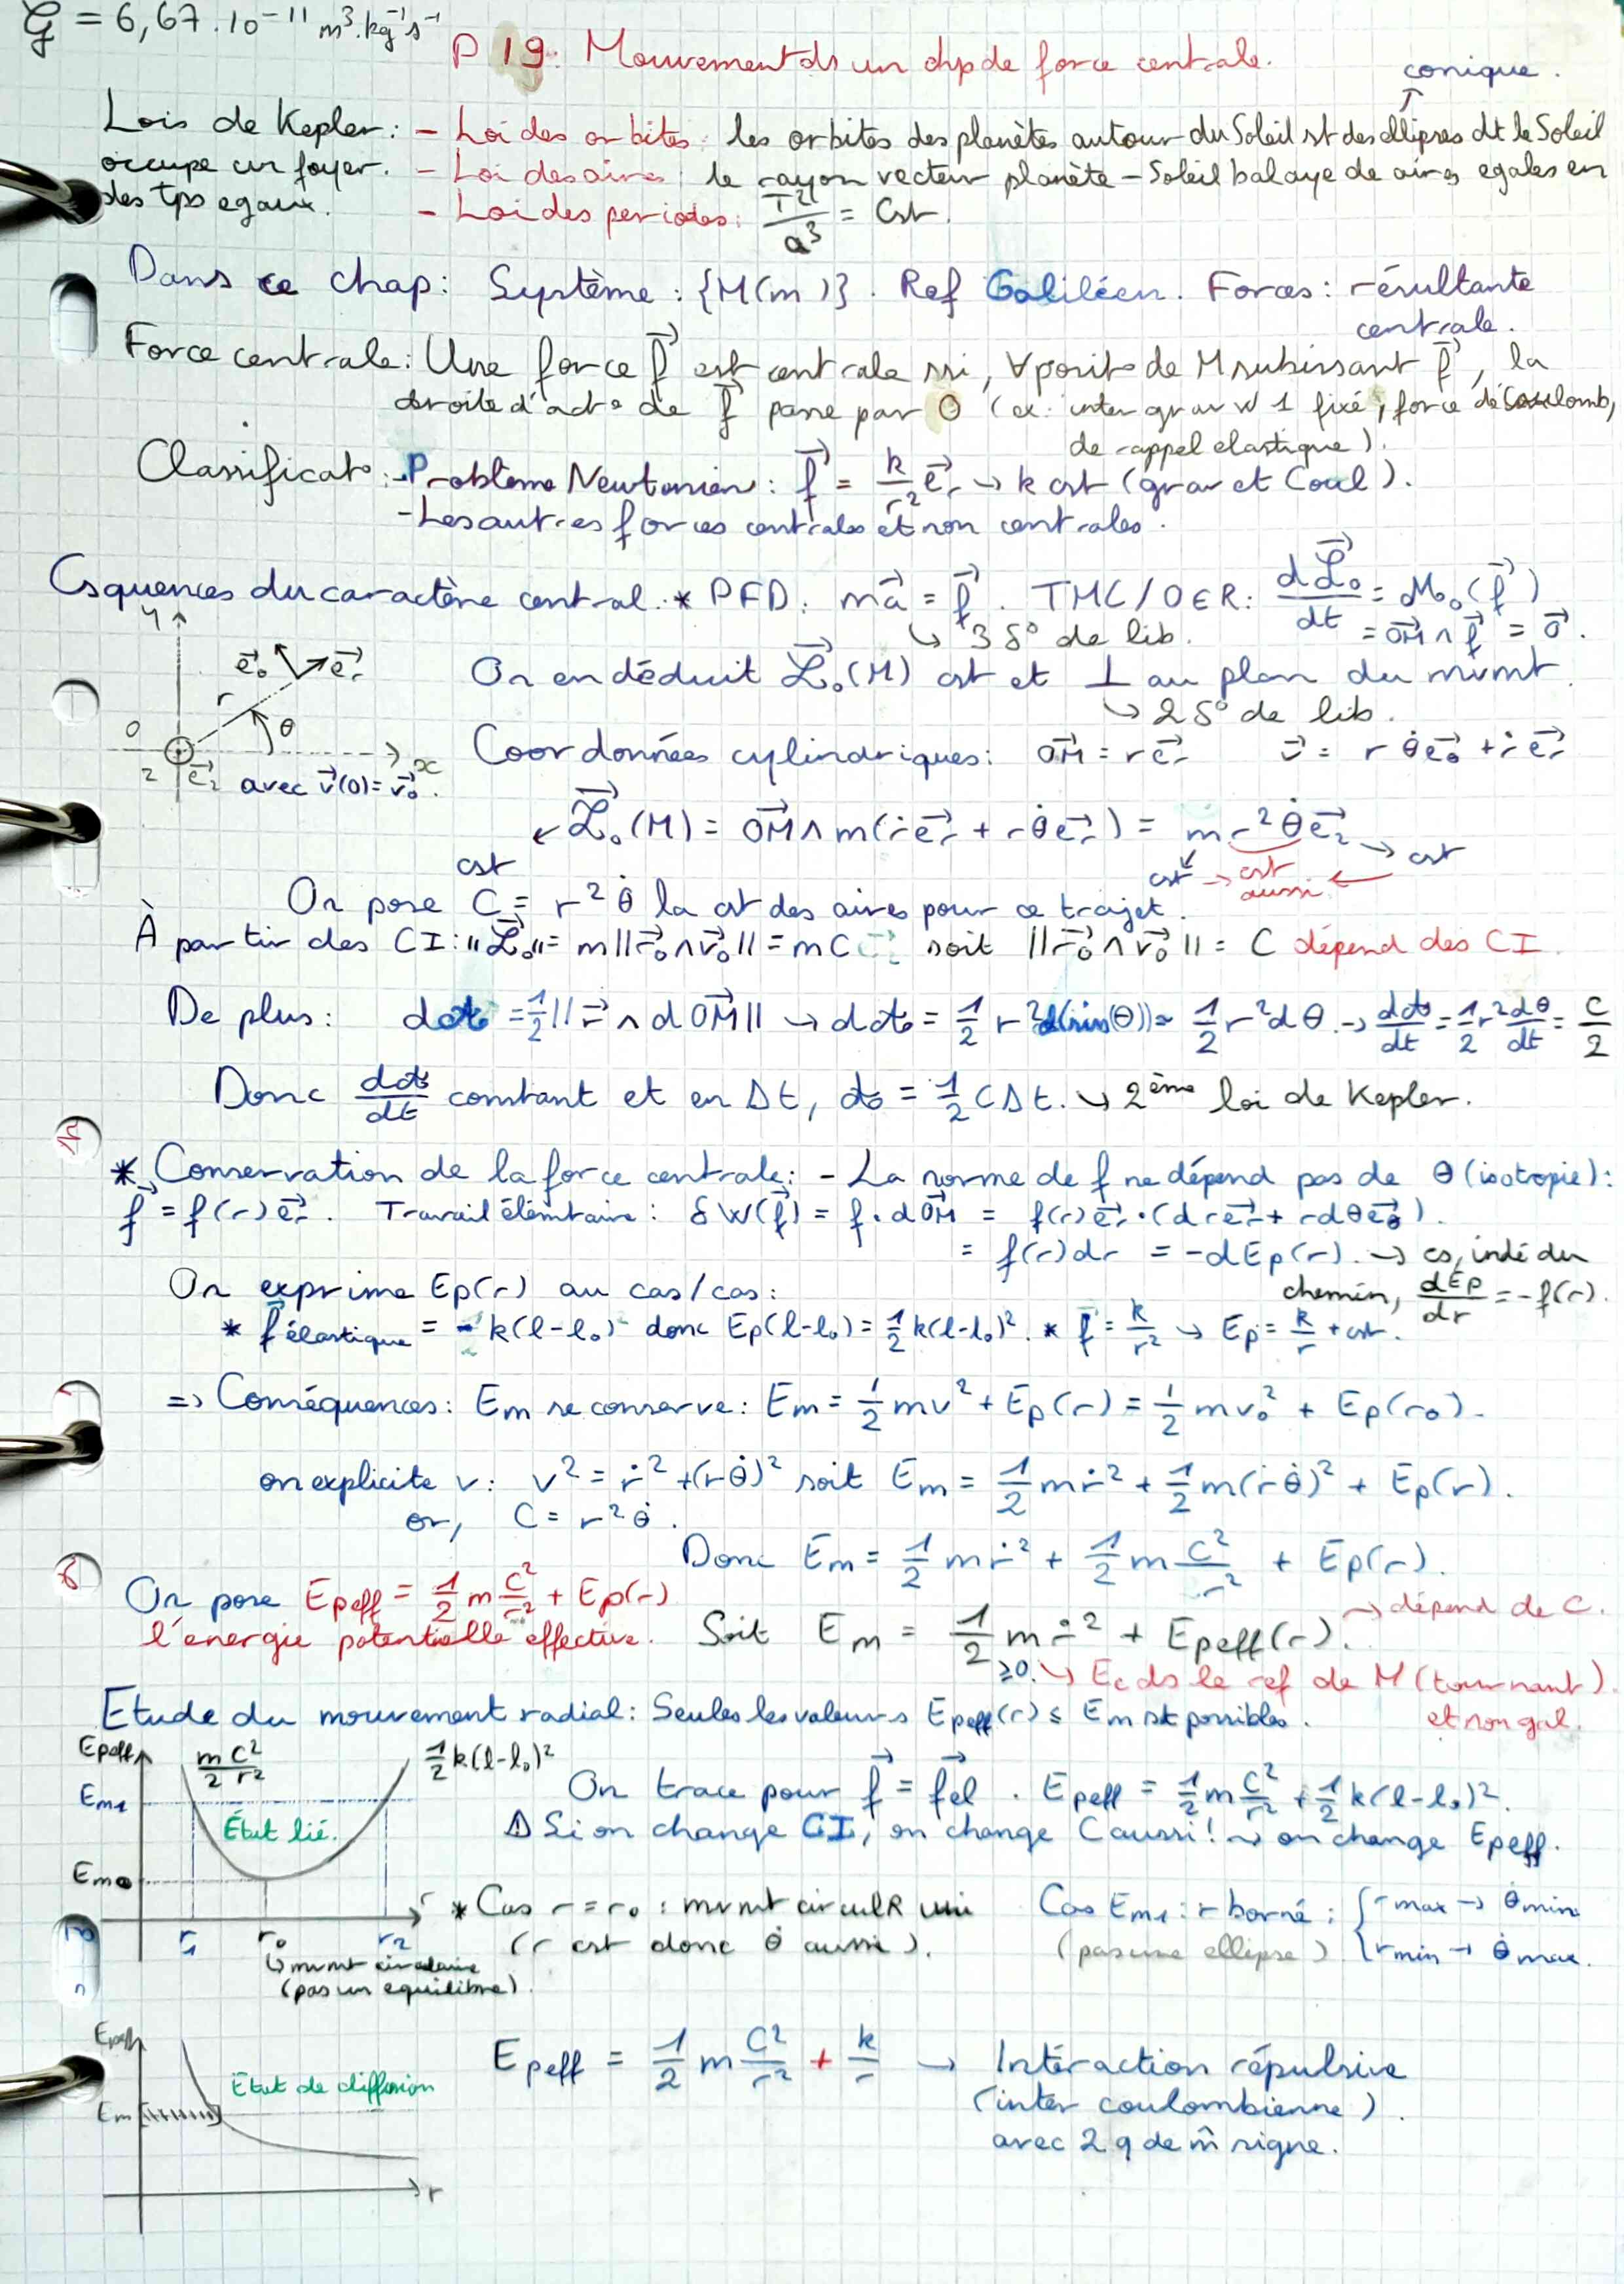 G = 6,67.10⁻¹¹ m³.kg⁻¹s⁻¹
P 19: Mouvement ds un chp de force centrale.
conique.
Lois de Kepler: - Loi des orbites: les orbites des planètes autour du Soleil st des ellipses dt le Soleil
occupe un foyer. - Loi des aires: le rayon vecteur planète - Soleil balaye de aires egales en
des tps egaux. - Loi des periodes: T²/a³ = Cst.
Dans ce chap: Système: {M(m)}. Ref Galiléen. Forces: résultante
centrale.
Force centrale: Une force f⃗ est centrale ssi, ∀ posit° de M subissant f⃗, la
droite d'act° de f⃗ passe par O (ex: inter grav w 1 fixé, force de Coulomb,
de rappel elastique).
Classificat°: - Problème Newtonien: f⃗ = k/r² e⃗r → k cst (grav et Coul).
- Les autres forces centrales et non centrales.
Csquences du caractère central: * PFD: ma⃗ = f⃗. TMC/O∈R: dL⃗o/dt = M⃗o(f⃗)
↳ 3 d° de lib. = OM⃗ ∧ f⃗ = 0⃗.
y
e⃗θ e⃗r
r
θ
O
z e⃗z x
avec v⃗(0) = v⃗0.
On en déduit L⃗o(M) cst et ⊥ au plan du mvmt.
↳ 2 d° de lib.
Coordonnées cylindriques: OM⃗ = re⃗r v⃗ = rθ̇e⃗θ + ṙe⃗r
L⃗o(M) = OM⃗ ∧ m(ṙe⃗r + rθ̇e⃗r) = mr²θ̇e⃗z → cst
cst cst → cst aussi ←
On pose C = r²θ̇ la cst des aires pour ce trajet.
À partir des CI: ||L⃗o|| = m||r⃗0 ∧ v⃗0|| = mC soit ||r⃗0 ∧ v⃗0|| = C dépend des CI.
De plus: dA = 1/2||r⃗ ∧ dOM⃗|| → dA = 1/2 r²d(sin(θ)) ≈ 1/2 r²dθ. → dA/dt = 1/2 r² dθ/dt = C/2
Donc dA/dt constant et en Δt, A = 1/2 CΔt. ↘ 2ème loi de Kepler.
* Conservation de la force centrale: - La norme de f ne dépend pas de θ (isotropie):
f⃗ = f(r)e⃗r. Travail élémtaire: δW(f⃗) = f.dOM⃗ = f(r)e⃗r.(dre⃗r + rdθe⃗θ).
= f(r)dr = -dEp(r). → cs, indé du
On exprime Ep(r) au cas/cas: chemin, dEp/dr = -f(r).
* f⃗élastique = -k(l-l0) donc Ep(l-l0) = 1/2 k(l-l0)². * f⃗ = k/r² → Ep = k/r + cst.
⇒ Conséquences: Em se conserve: Em = 1/2 mv² + Ep(r) = 1/2 mv0² + Ep(r0).
on explicite v: v² = ṙ² + (rθ̇)² soit Em = 1/2 mṙ² + 1/2 m(ṙθ̇)² + Ep(r).
or, C = r²θ̇.
Donc Em = 1/2 mṙ² + 1/2 m C²/r² + Ep(r).
On pose Epeff = 1/2 m C²/r² + Ep(r)
l'énergie potentielle effective. Soit Em = 1/2 mṙ² + Epeff(r). → dépend de C.
≥0. ↘ Ec ds le ref de M (tournant).
et non gal.
Etude du mouvement radial: Seules les valeurs Epeff(r) ≤ Em st possibles.
Epeff m/2 C²/r² 1/2 k(l-l0)²
Em1
État lié.
Em0
r1 r0 r2 r
↳ mvmt circulaire
(pas un equilibre).
On trace pour f⃗ = f⃗el. Epeff = 1/2 m C²/r² + 1/2 k(l-l0)².
⚠ Si on change CI, on change C aussi! → on change Epeff.
* Cas r = r0: mvmt circulR uni
(r cst donc θ̇ aussi).
Cas Em1: r borné: { rmax → θ̇min
(pas une ellipse) rmin → θ̇max.
Epeff
Etat de diffusion
Em
r
Epeff = 1/2 m C²/r² + k/r → Intéraction répulsive
(inter coulombienne).
avec 2 q de m̂ signe.